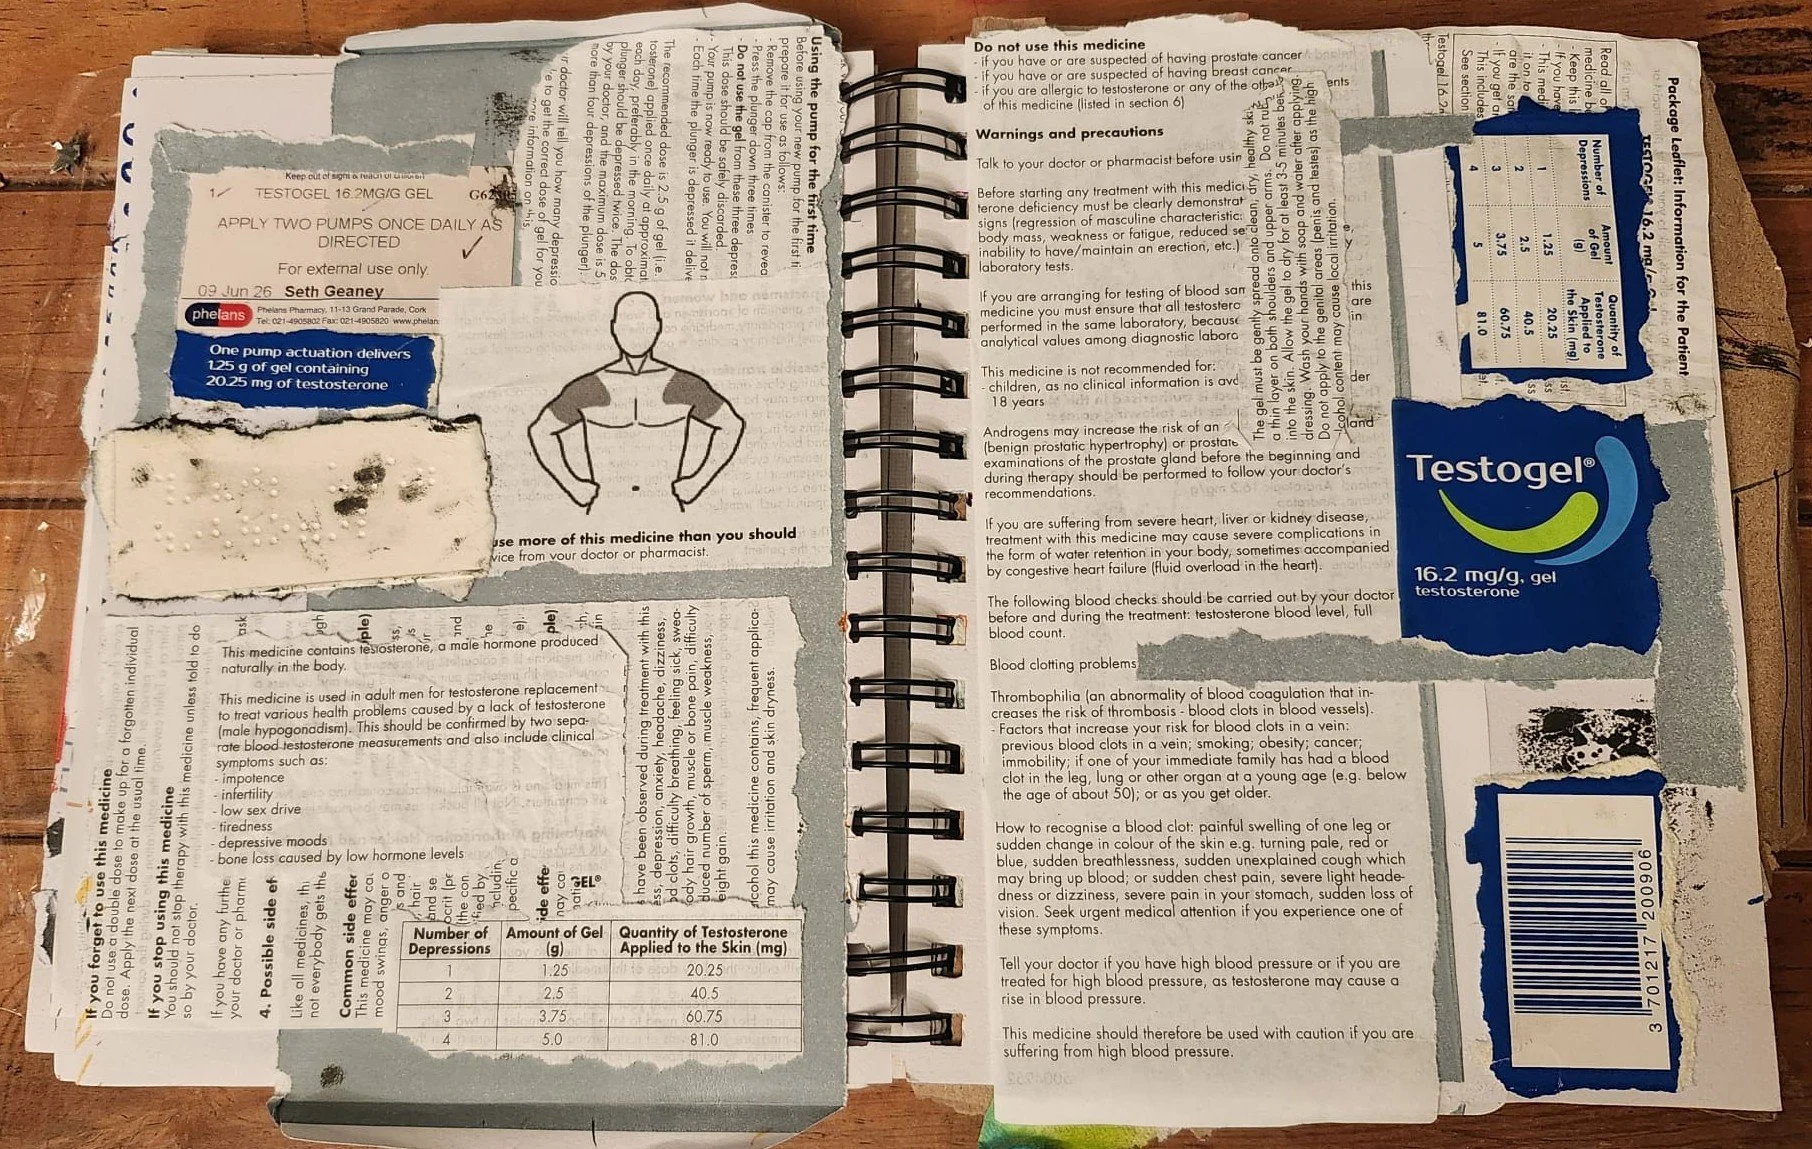 Keep out of sight & reach of children
1 TESTOGEL 16.2MG/G GEL G62
APPLY TWO PUMPS ONCE DAILY AS
DIRECTED
For external use only.
09 Jun 26 Seth Geaney
phelans
Phelans Pharmacy, 11-13 Grand Parade, Cork
Tel: 021-4905802 Fax: 021-4905820 www.phelan
One pump actuation delivers
1.25 g of gel containing
20.25 mg of testosterone
Using the pump for the first time
Before using your new pump for the first ti
prepare it for use as follows:
- Remove the cap from the canister to revea
- Press the plunger down three times
- Do not use the gel from these three depres
This dose should be safely discarded.
- Your pump is now ready to use. You will not n
- Each time the plunger is depressed it delive
The recommended dose is 2.5 g of gel (i.e.
tosterone) applied once daily at approximat
each day, preferably in the morning. To obt
plunger should be depressed twice. The dos
by your doctor, and the maximum dose is 5
more than four depressions of the plunger).
ur doctor will tell you how many depressio
e to get the correct dose of gel for you
more information on this
use more of this medicine than you should
vice from your doctor or pharmacist.
If you forget to use this medicine
Do not use a double dose to make up for a forgotten individual
dose. Apply the next dose at the usual time.
If you stop using this medicine
You should not stop therapy with this medicine unless told to do
so by your doctor.
If you have any furthe
your doctor or pharma
ask
4. Possible side ef
Like all medicines, th
not everybody gets the
Common side effec
This medicine may ca
mood swings, anger o
This medicine contains testosterone, a male hormone produced
naturally in the body.
This medicine is used in adult men for testosterone replacement
to treat various health problems caused by a lack of testosterone
(male hypogonadism). This should be confirmed by two sepa-
rate blood testosterone measurements and also include clinical
symptoms such as:
- impotence
- infertility
- low sex drive
- tiredness
- depressive moods
- bone loss caused by low hormone levels
have been observed during treatment with this
ess, depression, anxiety, headache, dizziness,
od clots, difficulty breathing, feeling sick, swea-
ody hair growth, muscle or bone pain, difficulty
duced number of sperm, muscle weakness,
eight gain.
alcohol this medicine contains, frequent applica-
may cause irritation and skin dryness.
GEL®
Number of Depressions Amount of Gel (g) Quantity of Testosterone Applied to the Skin (mg)
1 1.25 20.25
2 2.5 40.5
3 3.75 60.75
4 5.0 81.0
Do not use this medicine
- if you have or are suspected of having prostate cancer
- if you have or are suspected of having breast cancer
- if you are allergic to testosterone or any of the other ents
of this medicine (listed in section 6)
Warnings and precautions
Talk to your doctor or pharmacist before usin
Before starting any treatment with this medici
terone deficiency must be clearly demonstrat
signs (regression of masculine characteristic
body mass, weakness or fatigue, reduced se
inability to have/maintain an erection, etc.)
laboratory tests.
If you are arranging for testing of blood sam this
medicine you must ensure that all testostero are
performed in the same laboratory, because in
analytical values among diagnostic labora
This medicine is not recommended for:
- children, as no clinical information is ava der
18 years
Androgens may increase the risk of an land
(benign prostatic hypertrophy) or prostate
examinations of the prostate gland before the beginning and
during therapy should be performed to follow your doctor's
recommendations.
If you are suffering from severe heart, liver or kidney disease,
treatment with this medicine may cause severe complications in
the form of water retention in your body, sometimes accompanied
by congestive heart failure (fluid overload in the heart).
The following blood checks should be carried out by your doctor
before and during the treatment: testosterone blood level, full
blood count.
Blood clotting problems
Thrombophilia (an abnormality of blood coagulation that in-
creases the risk of thrombosis - blood clots in blood vessels).
- Factors that increase your risk for blood clots in a vein:
previous blood clots in a vein; smoking; obesity; cancer;
immobility; if one of your immediate family has had a blood
clot in the leg, lung or other organ at a young age (e.g. below
the age of about 50); or as you get older.
How to recognise a blood clot: painful swelling of one leg or
sudden change in colour of the skin e.g. turning pale, red or
blue, sudden breathlessness, sudden unexplained cough which
may bring up blood; or sudden chest pain, severe light heade-
dness or dizziness, severe pain in your stomach, sudden loss of
vision. Seek urgent medical attention if you experience one of
these symptoms.
Tell your doctor if you have high blood pressure or if you are
treated for high blood pressure, as testosterone may cause a
rise in blood pressure.
This medicine should therefore be used with caution if you are
suffering from high blood pressure.
The gel must be gently spread onto clean, dry, healthy skin
a thin layer on both shoulders and upper arms. Do not rub
into the skin. Allow the gel to dry for at least 3-5 minutes before
dressing. Wash your hands with soap and water after applying
Do not apply to the genital areas (penis and testes) as the high
alcohol content may cause local irritation.
Package Leaflet: Information for the Patient
TESTOGEL 16.2 mg/g Gel
Read all of
medicine b
- Keep this l
- If you have
- This medi
it on to
are the sa
- If you get a
This includes
See section
Testogel 16.2
Number of Depressions Amount of Gel (g) Quantity of Testosterone Applied to the Skin (mg)
1 1.25 20.25
2 2.5 40.5
3 3.75 60.75
4 5 81.0
Testogel®
16.2 mg/g, gel
testosterone
3 701217 200906